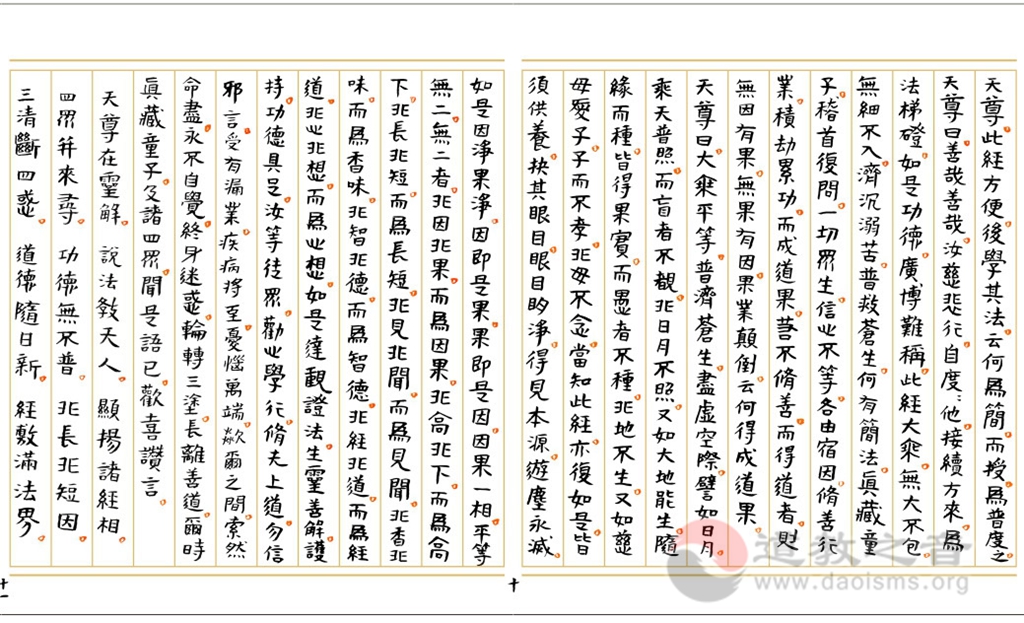 天尊此經方便後學其法云何為簡而授為普度之
天尊曰善哉善哉汝慈悲行自度他接續方來為
法梯磴如是功德廣博難稱此經大乘無大不包
無細不入濟沉溺苦普救蒼生何有簡法真藏童
子稽首復問一切眾生信心不等各由宿因脩善行
業積劫累功而成道果若不脩善而得道者則
無因有果無果有因果業顛倒云何得成道果
天尊曰大乘平等普濟蒼生盡虛空際譬如日月
乘天普照而盲者不覩非日月不照又如大地能生隨
緣而種皆得果實而愚者不種非地不生又如慈
母愛子子而不孝非母不念當知此經亦復如是皆
須供養抉其眼目眼目明淨得見本源遊塵永滅
十
如是因淨果淨因即是果果即是因因果一相平等
無二無二者非因非果而為因果非高非下而為高
下非長非短而為長短非見非聞而為見聞非香非
味而為香味非智非德而為智德非經非道而為經
道非心非想而為心想如是達觀證法生靈善解護
持功德具足汝等徒眾勸心學行脩夫上道勿信
邪言受有漏業疾病將至憂惱萬端歘爾之間索然
命盡永不自覺終身迷惑輪轉三塗長離善道爾時
真藏童子及諸四眾聞是語已歡喜讚言
天尊在靈解 說法教天人 顯揚諸經相
四眾并來尋 功德無不普 非長非短因
三清斷四惑 道德隨日新 經敷滿法界
十一
道教之音
www.daoisms.org